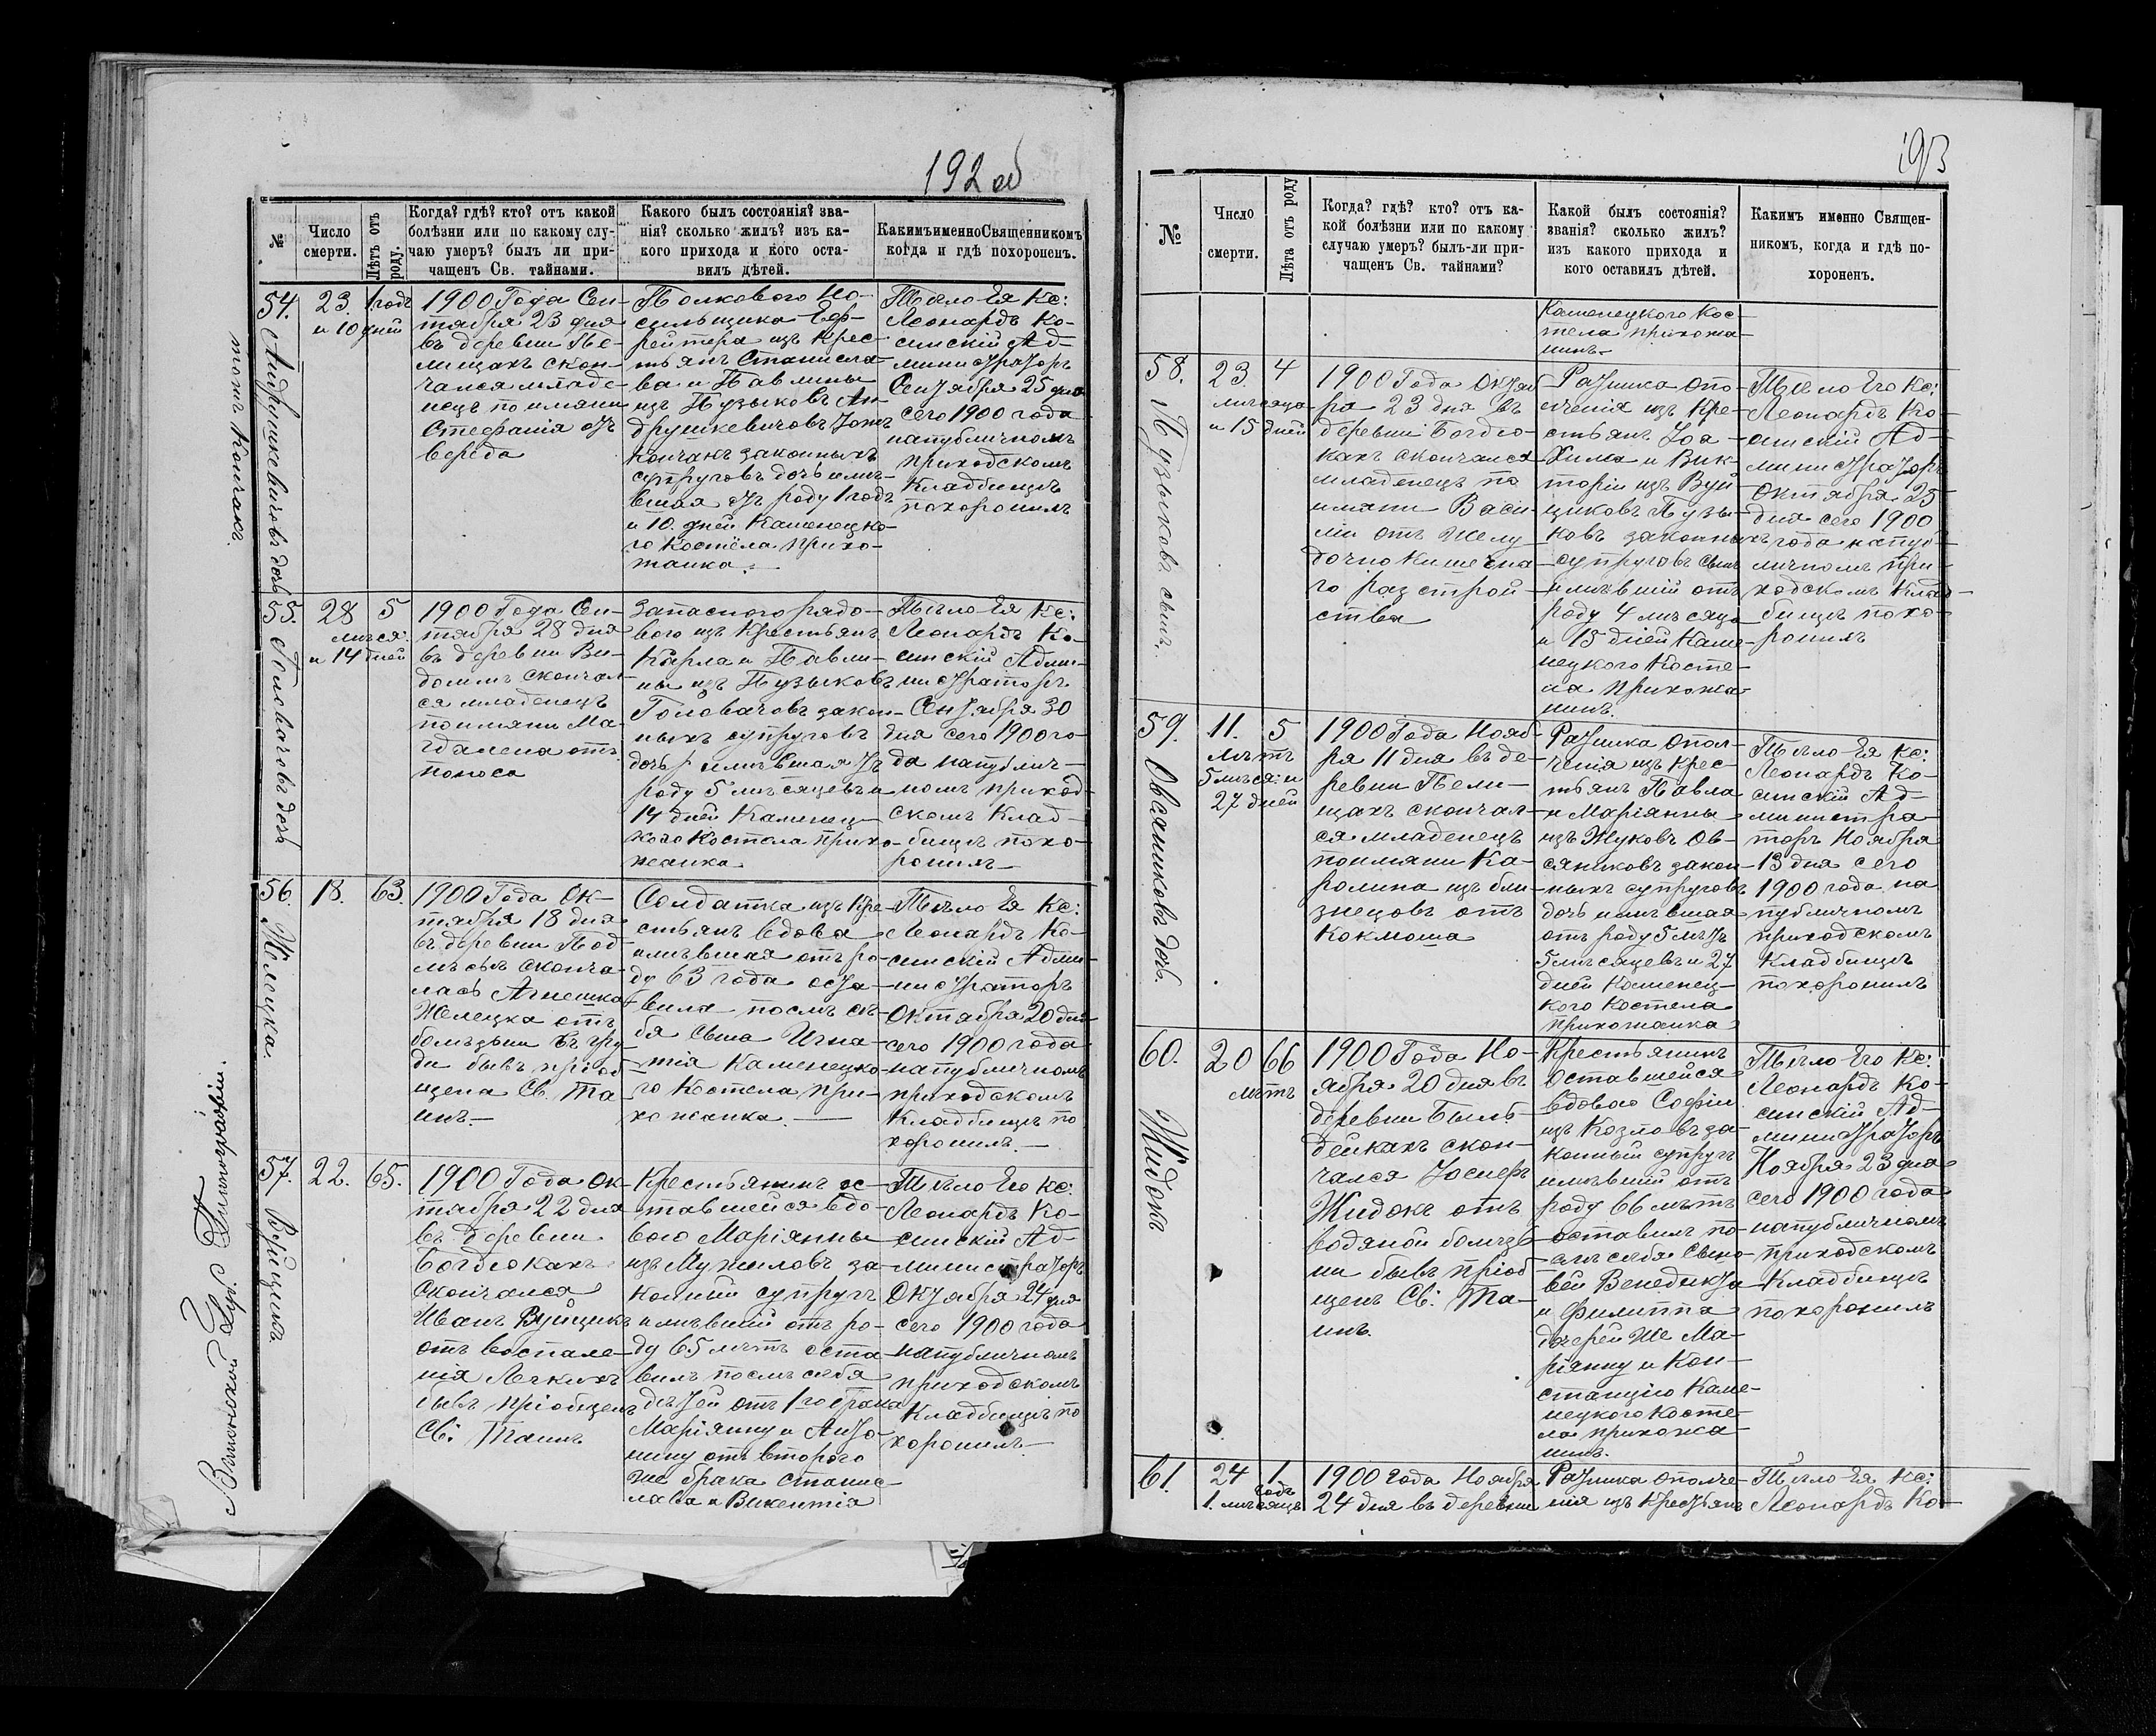 192 об
№
Число смерти.
Лѣтъ отъ роду.
Когда? гдѣ? кто? отъ какой
болѣзни или по какому слу-
чаю умеръ? былъ ли при-
чащенъ Св. тайнами.
Какого былъ состоянія? зва-
нія? сколько жилъ? изъ ка-
кого прихода и кого оста-
вилъ дѣтей.
Какимъ именно Священникомъ
когда и гдѣ похороненъ.
54.
Андрушкевичовъ дочь
тожъ Кончакъ.
23.
1 годъ
и 10 дней
1900 Года Сен-
тября 23 дня
въ деревни Пе-
лищахъ скон-
чался младе-
нецъ по имяни
Стефанія отъ
вереда
Полкового Но-
сильщика Еф-
рейтера изъ Крес-
тьянъ Станисла-
ва и Павлины
изъ Пузыковъ Ан-
друшкевичовъ Тожъ
Кончакъ законныхъ
супруговъ дочь имѣ-
вшая отъ роду 1 годъ
и 10. дней Каменецка-
го Костёла прихо-
жанка.
Тѣло Ея Кс:
Леонардъ Ко-
синскій Ад-
министраторъ
Сентября 25 дня
сего 1900 года
на публичномъ
приходскомъ
Кладбищѣ
похоронилъ
55.
Головачовъ дочь
28
5
мѣся.
и 14 дней
1900 Года Сен-
тября 28 дня
въ деревни Ви-
домлѣ скончал-
ся младенецъ
по имяни Ма-
гдалена отъ
поноса
Запасного рядо-
вого изъ Крестьянъ
Карла и Павли-
ны изъ Пузыковъ
Головачовъ закон-
ныхъ супруговъ
дочь имѣвшая отъ
роду 5 мѣсяцевъ и
14 дней Каменец-
кого Костела прихо-
жанка
Тѣло Ея Кс:
Леонардъ Ко-
синскій Адми-
нистраторъ
Сентября 30
дня сего 1900 го-
да на публич-
номъ приход-
скомъ Клад-
бищѣ похо-
ронилъ
56.
Желецка.
18.
63.
1900 Года Ок-
тября 18 дня
въ деревни Под-
лѣсьѣ сконча-
лась Агнешка
Желецка отъ
болѣзни въ гру-
ди бывъ приоб-
щена Св. Та-
инъ.
Солдатка изъ Кре-
стьянъ вдова
имѣвшая отъ ро-
ду 63 года оста-
вила послѣ се-
бя сына Игна-
тія Каменецко-
го Костела при-
хожанка.
Тѣло Ея Кс:
Леонардъ Ко-
синскій Адми-
нистраторъ
Октября 20 дня
сего 1900 года
на публичномъ
приходскомъ
Кладбищѣ по
хоронилъ.
57.
Вуйцикъ.
22.
65.
1900 Года Ок-
тября 22 дня
въ деревни
Богдюкахъ
Скончался
Иванъ Вуйцикъ
отъ воспале-
нія Легкихъ
бывъ пріобщенъ
Св: Таинъ
Крестьянинъ ос-
тавшейся вдо-
вою Маріянны
изъ Мужиловъ за-
конный супругъ
имѣвшій отъ ро-
ду 65 лѣтъ оста-
вилъ послѣ себя
дѣтей отъ 1го брака
Маріянну и Анто-
нину отъ второго
же брака Станис-
лава и Викентія
Тѣло Его Кс:
Леонардъ Ко-
синскій Ад-
министраторъ
Октября 24 дня
сего 1900 года
на публичномъ
приходскомъ
Кладбищѣ по
хоронилъ
193
№
Число
смерти.
Лѣта отъ роду
Когда? гдѣ? кто? отъ ка-
кой болѣзни или по какому
случаю умеръ? былъ-ли при-
чащенъ Св. тайнами?
Какой былъ состоянія?
званія? сколько жилъ?
изъ какого прихода и
кого оставилъ дѣтей.
Какимъ именно Священ-
никомъ, когда и гдѣ по-
хороненъ.
Каменецкого Кос-
тела прихожа-
нинъ
58.
Пузыковъ сынъ.
23.
4
мѣсяца
и 15 дней
1900 Года Октяб-
ря 23 дня въ
деревни Богдю-
кахъ скончался
младенецъ по
имяни Васи-
лій отъ желу-
дочно кишечна-
го разстрой-
ства
Ратника опо-
лченія изъ Кре-
стьянъ Іоа-
хима и Вик-
торіи изъ Вуй-
циковъ Пузы-
ковъ законныхъ
супруговъ сынъ
имѣвшій отъ
роду 4 мѣсяца
и 15 дней Каме-
нецкого Косте-
ла прихожа-
нинъ.
Тѣло Его Кс:
Леонардъ Ко-
синскій Ад-
министраторъ
Октября 25
дня сего 1900
года на пуб-
личномъ при-
ходскомъ Клад-
бищѣ похо-
ронилъ
59.
Овсяниковъ дочь.
11.
5
лѣтъ
5 мѣся: и
27 дней
1900 Года Нояб-
ря 11 дня въ де-
ревни Пели-
щахъ скончал-
ся младенецъ
по имяни Ка-
ролина изъ бли-
знецовъ отъ
Коклюша
Ратника опол-
ченія изъ Крес-
тьянъ Павла
и Маріянны
изъ Жуковъ Ов-
сяниковъ закон-
ныхъ супруговъ
дочь имѣвшая
отъ роду 5 лѣтъ
5 мѣсяцевъ и 27
дней Каменец-
кого Костела
прихожанка
Тѣло Ея Кс:
Леонардъ Ко-
синскій Ад-
министра-
торъ Ноября
13 дня сего
1900 года на
публичномъ
приходскомъ
Кладбищѣ
похоронилъ
60.
Жидокъ
20
66
лѣтъ
1900 Года Но-
ября 20 дня въ
деревни Быль-
дейкахъ скон-
чался Іосифъ
Жидокъ отъ
водяной болѣз-
ни бывъ пріоб-
щенъ Св: Та-
инъ.
Крестьянинъ
Оставшейся
вдовою Софіи
изъ Козловъ за-
конный супругъ
имѣвшій отъ
роду 66 лѣтъ
оставилъ по-
слѣ себя Сыно-
вей Венедикта
и Филиппа
дочерей же Ма-
ріянну и Кон-
станцію Каме-
нецкого Косте-
ла прихожа-
нинъ.
Тѣло Его Кс:
Леонардъ Ко-
синскій Ад-
министраторъ
Ноября 23 дня
сего 1900 года
на публичномъ
приходскомъ
Кладбищѣ
похоронилъ
61.
24
1.
годъ
1. мѣсяцъ
1900 года Ноября
24 дня въ деревни
Ратника ополче-
нія изъ Крестьянъ
Тѣло Ея Кс:
Леонардъ Ко-